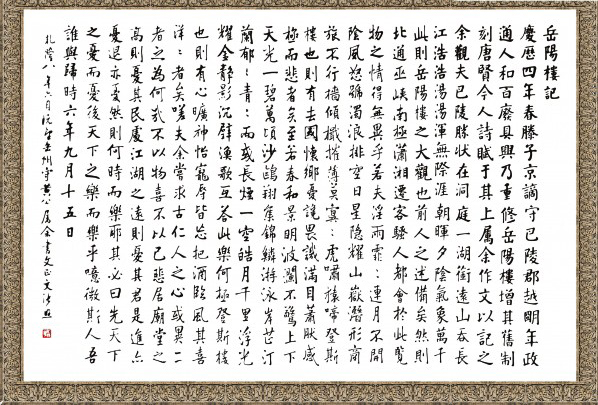 岳陽樓記
慶曆四年春滕子京謫守巴陵郡越明年政
通人和百廢具興乃重修岳陽樓增其舊制
刻唐賢今人詩賦于其上屬余作文以記之
余觀夫巴陵勝狀在洞庭一湖銜遠山吞長
江浩浩湯湯渾無際涯朝暉夕陰氣象萬千
此則岳陽樓之大觀也前人之述備矣然則
北通巫峽南極瀟湘遷客騷人都會於此覽
物之情得無異乎若夫淫雨霏:連月不開
陰風怒號濁浪排空日星隱耀山嶽潛形商
旅不行檣傾楫摧薄莫冥:虎嘯猿啼登斯
樓也則有去國懷鄉憂讒畏譏滿目蕭肰感
極而悲者矣至若春和景明波瀾不驚上下
天光一碧萬頃沙鷗翔集錦鱗游泳岸芷汀
蘭郁:青:而或長煙一空皓月千里浮光
耀金靜影沉璧漁歌互答此樂何極登斯樓
也則有心曠神怡寵辱皆忘把酒臨風其喜
洋:者矣嗟夫余嘗求古仁人之心或異二
者之為何哉不以物喜不以己悲居廟堂之
高則憂其民處江湖之遠則憂其君是進亦
憂退亦憂然則何時而樂耶其必曰先天下
之憂而憂後天下之樂而樂乎噫微斯人吾
誰與歸時六年九月十五日